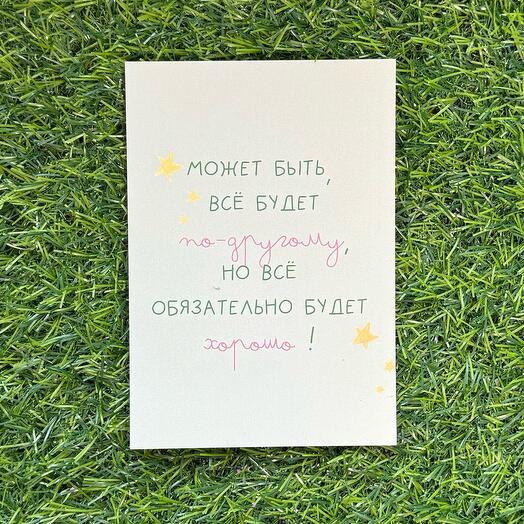 МОЖЕТ БЫТЬ,
ВСЁ БУДЕТ
по-другому,
НО ВСЁ
ОБЯЗАТЕЛЬНО БУДЕТ
хорошо !